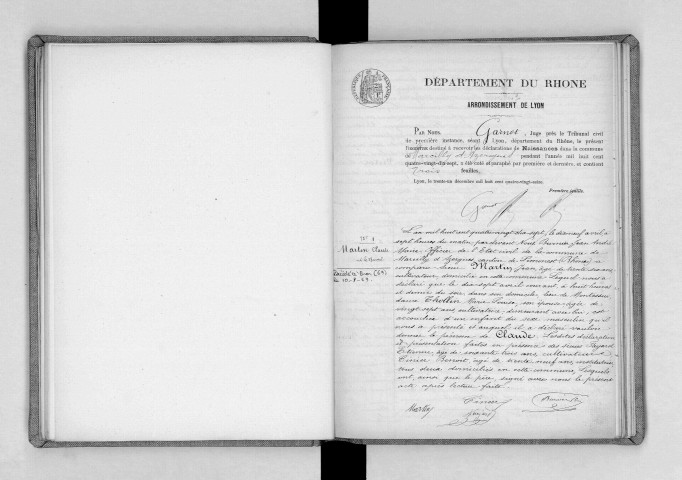 DÉPARTEMENT DU RHONE
ARRONDISSEMENT DE LYON
PAR NOUS, Garnot, Juge près le Tribunal civil
de première instance, séant à Lyon, département du Rhône, le présent
registre destiné à recevoir les déclarations de Naissances dans la commune
de Marcilly d'Azergues pendant l'année mil huit cent
quatre-vingt-dix-sept, a été coté et paraphé par première et dernière, et contient
feuilles.
Lyon, le trente-un décembre mil huit cent quatre-vingt-seize.
Première feuille.
N° 1
Martin Claude
Décédé à Bron (69)
L'an mil huit cent quatre vingt dix-sept, le dix neuf avril à
sept heures du matin, par devant Nous Jean André
Marie, Officier de l'Etat civil de la commune de
Marcilly d'Azergues canton de Limonest (Rhône) a
comparu sieur Martin Jean, âgé de trente six ans
cultivateur, domicilié en cette commune Lequel nous a
déclaré que le dix-sept avril courant à huit heures
et demie du soir dans son domicile, lieu de
dame Thollin Marie Louise, son épouse âgée de
vingt sept ans cultivatrice demeurant avec lui est
accouchée d'un enfant du sexe masculin qu'il
nous a présenté et auquel il a déclaré vouloir
donner le prénom de Claude. Lesdites déclaration
et présentation faites en présence des sieurs Fayard
Etienne, âgé de soixante trois ans cultivateur et
Benoit, âgé de trente neuf ans, instituteur
tous deux domiciliés en cette commune, Lesquels
ont, ainsi que le père, signé avec nous le présent
acte après lecture faite.
Martin